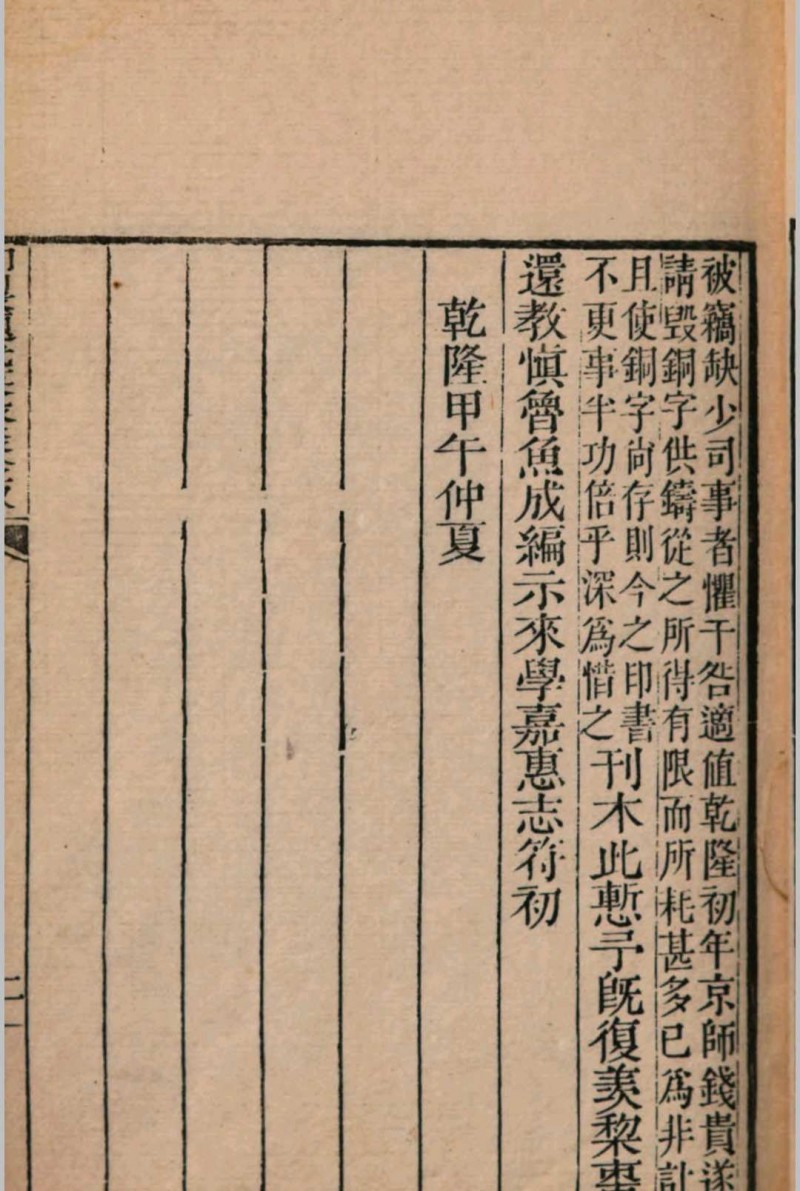 被竊缺少司事者懼干咎適值乾隆初年京師錢貴遂
請毀銅字供鑄從之所得有限而所耗甚多已為非計
且使銅字尚存則今之印書
不更事半功倍乎深為惜之
刊木此慙予既復羡黎棗
還教慎魯魚成編示來學嘉惠志符初
乾隆甲午仲夏